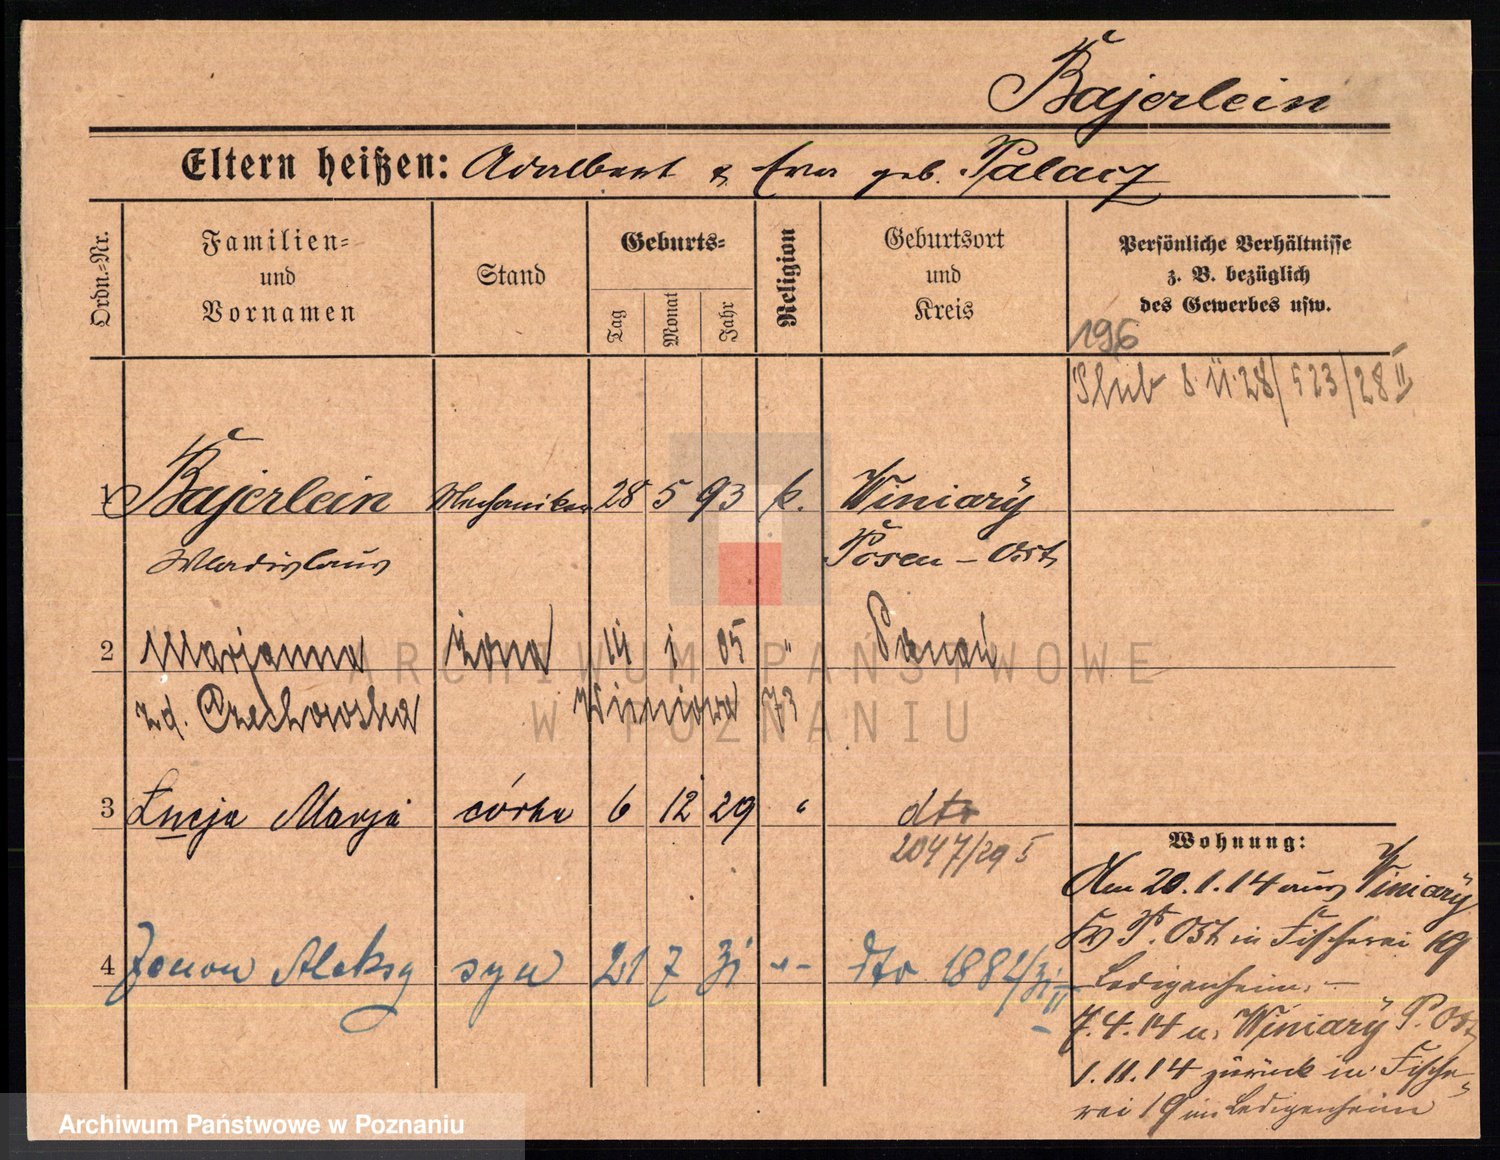 Bajerlein
Eltern heißen: Adalbert & Eva geb. Palacz
Ordn.-Nr.
Familien-
und
Vornamen
Stand
Geburts-
Tag
Monat
Jahr
Religion
Geburtsort
und
Kreis
Persönliche Verhältnisse
z. B. bezüglich
des Gewerbes usw.
196
Ślub 8.11.28/523/28 II
1 Bajerlein Mechaniker 28 5 93 k. Winiary
Wladislaus Posen-Ost
2 Marjanna żona 14 1 05 " Poznań
zd. Czechowska
3 Łucja Marja córka 6 12 29 " dto
2047/29 5
4 Zenon Aleksy syn 21 7 31 -"- dto 1881/31 II
Wohnung:
Am 20.1.14 aus Winiary
Kr P. Ost in Fischerei 19
Ledigenheim. –
7.4.14 n. Winiary P. Ost
1.11.14 zurück in Fische-
rei 19 im Ledigenheim
ARCHIWUM PAŃSTWOWE
W POZNANIU
Archiwum Państwowe w Poznaniu